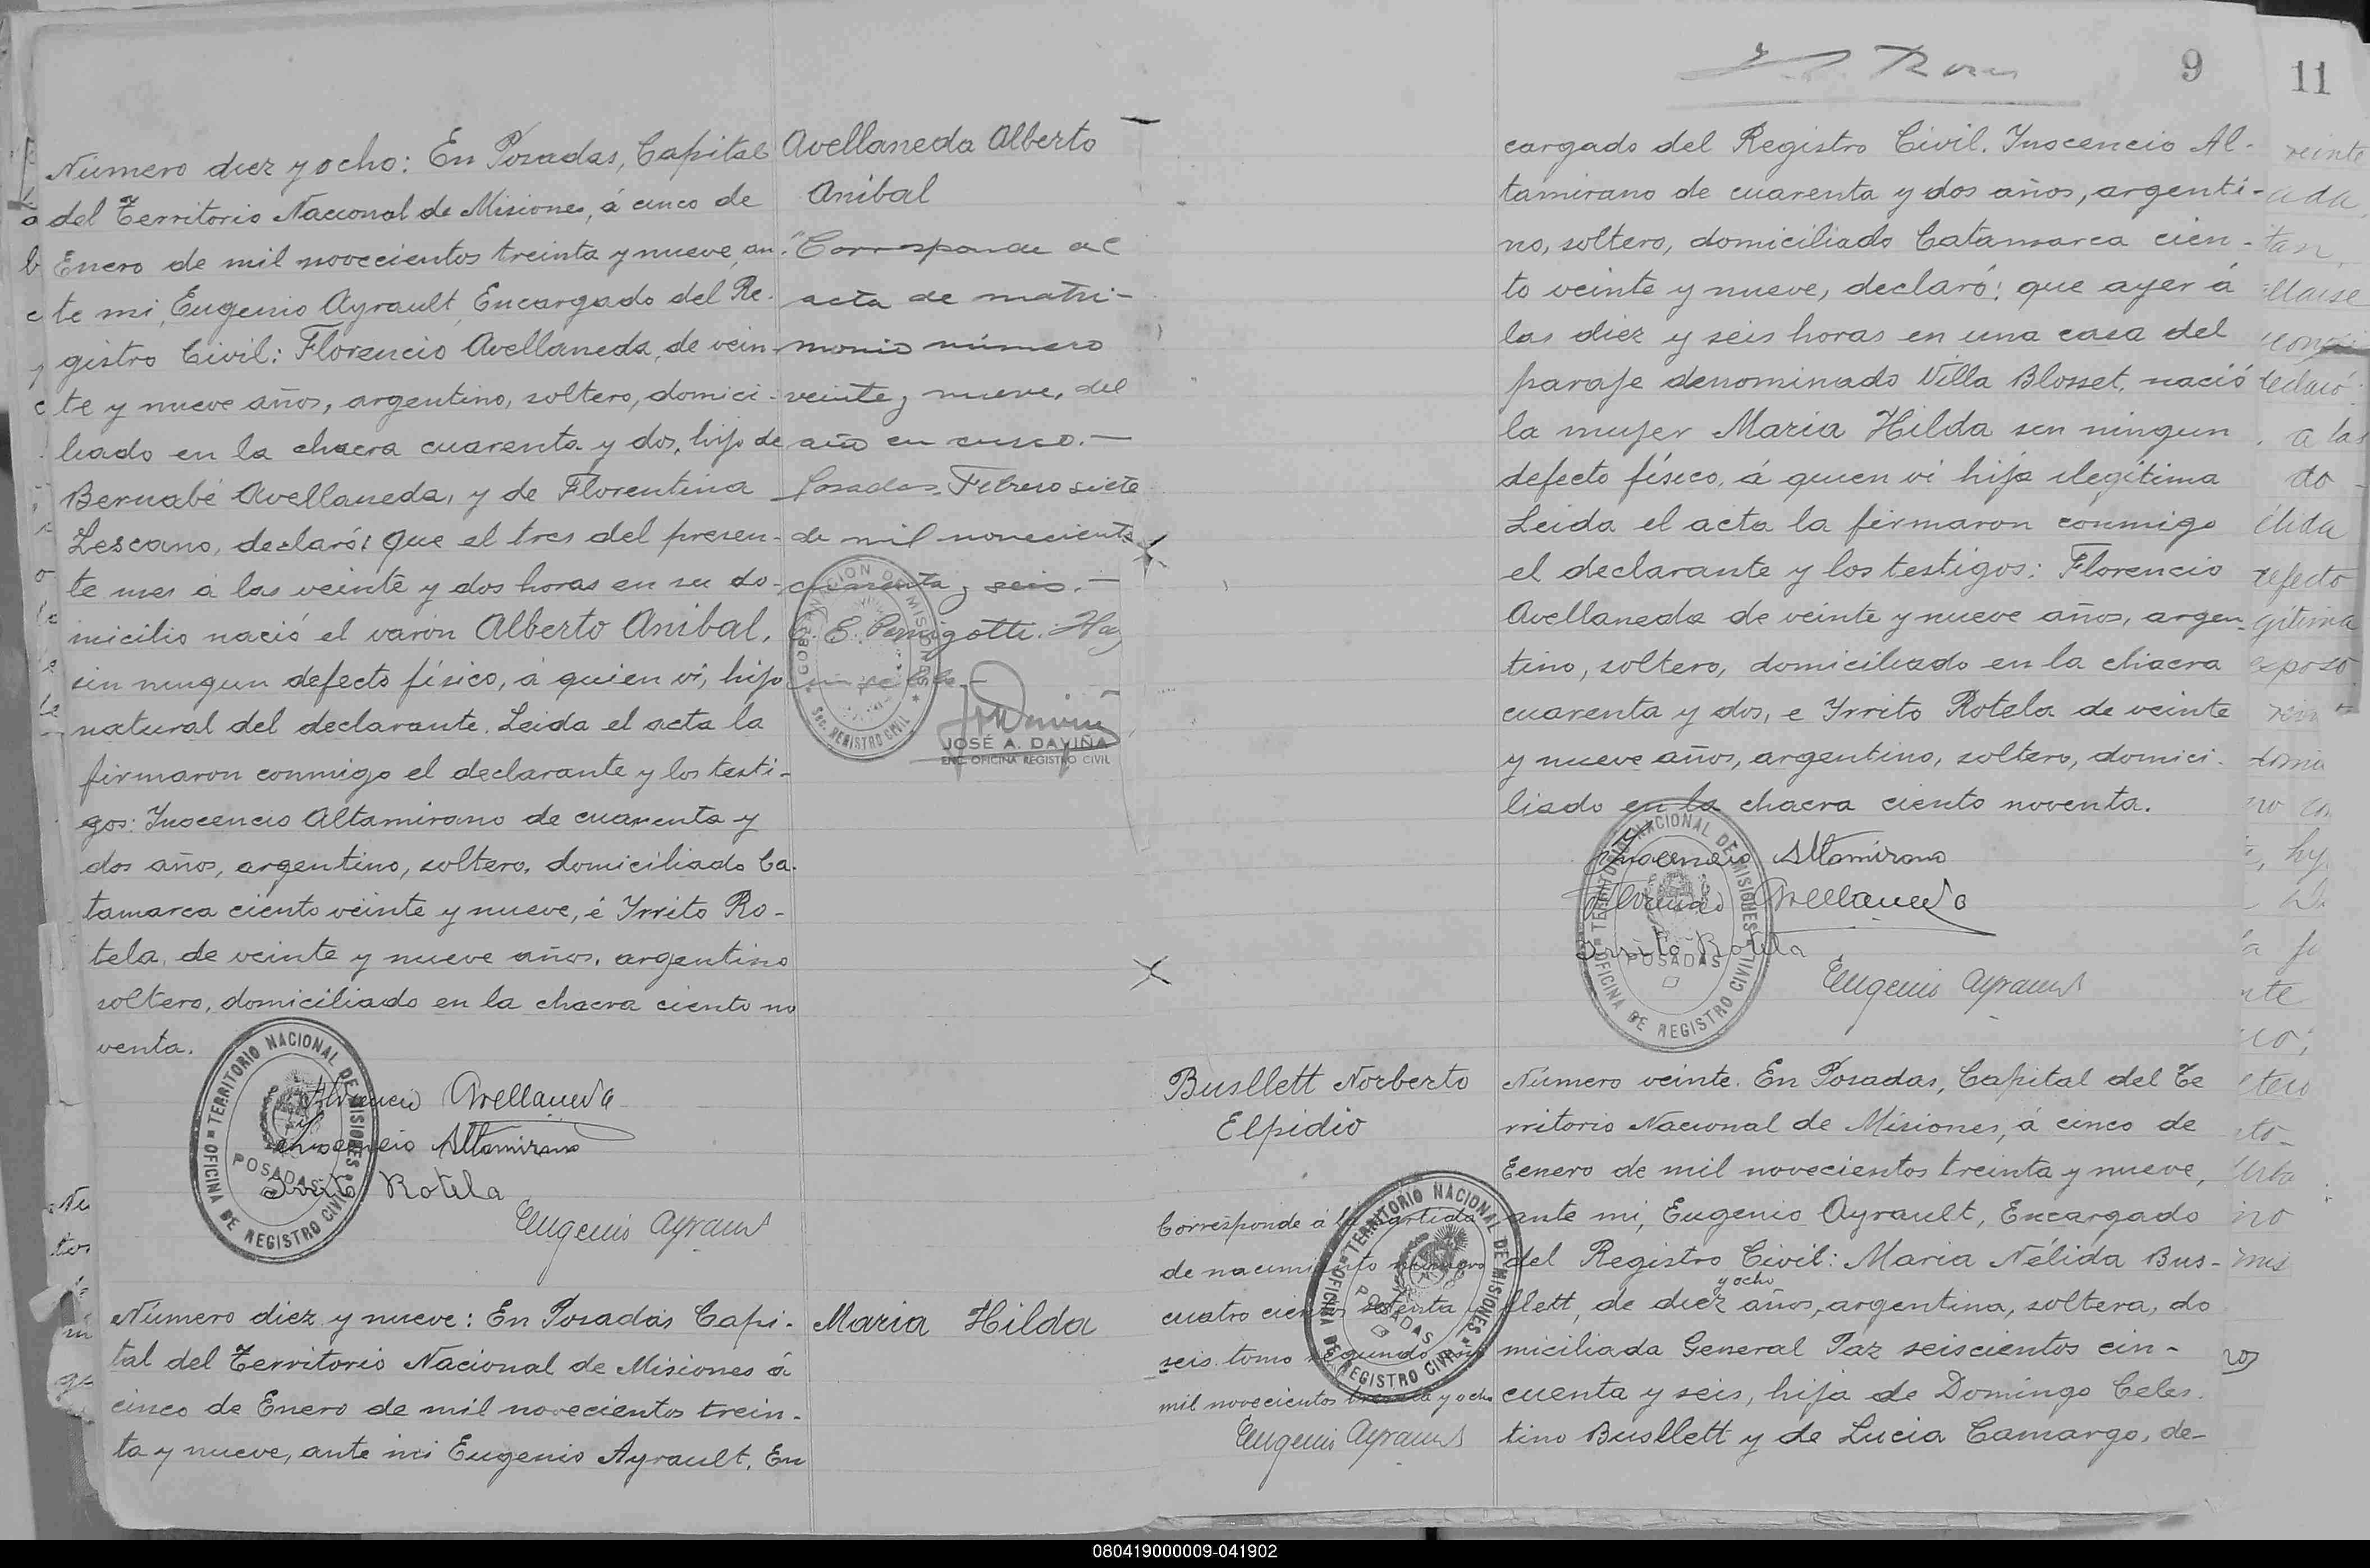 Número diez y ocho: En Posadas, Capital
del Territorio Nacional de Misiones, á cinco de
Enero de mil novecientos treinta y nueve, an-
te mi, Eugenio Ayrault, Encargado del Re-
gistro Civil: Florencio Avellaneda, de vein-
te y nueve años, argentino, soltero, domici-
liado en la chacra cuarenta y dos, hijo de
Bernabé Avellaneda, y de Florentina
Lescano, declaró: que el tres del presen-
te mes á las veinte y dos horas en su do-
micilio nació el varón Alberto Anibal,
sin ningun defecto físico, á quien vi, hijo
natural del declarante. Leida el acta la
firmaron conmigo el declarante y los testi-
gos: Inocencio Altamirano de cuarenta y
dos años, argentino, soltero, domiciliado Ca-
tamarca ciento veinte y nueve, é Irrito Ro-
tela, de veinte y nueve años, argentino
soltero, domiciliado en la chacra ciento no
venta.
Florencio Avellaneda
Inocencio Altamirano
Rotela
Eugenio Ayrault
TERRITORIO NACIONAL DE MISIONES
POSADAS
OFICINA DE REGISTRO CIVIL
Avellaneda Alberto
Anibal
"Corresponde al
acta de matri-
monio número
veinte y nueve, del
año en curso.-
Posadas, Febrero siete
de mil novecientos
cuarenta y seis.-
GOBERNACION DE MISIONES
SEC. REGISTRO CIVIL
JOSÉ A. DAVIÑA
ENC. OFICINA REGISTRO CIVIL
Número diez y nueve: En Posadas Capi-
tal del Territorio Nacional de Misiones á
cinco de Enero de mil novecientos trein-
ta y nueve, ante mi Eugenio Ayrault, En
Maria Hilda
9
11
cargado del Registro Civil. Inocencio Al-
tamirano de cuarenta y dos años, argenti-
no, soltero, domiciliado Catamarca cien-
to veinte y nueve, declaró: que ayer á
las diez y seis horas en una casa del
paraje denominado Villa Blosset, nació
la mujer Maria Hilda sin ningun
defecto físico, á quien vi hija ilegítima
Leida el acta la firmaron conmigo
el declarante y los testigos: Florencio
Avellaneda de veinte y nueve años, argen-
tino, soltero, domiciliado en la chacra
cuarenta y dos, e Irrito Rotela de veinte
y nueve años, argentino, soltero, domici-
liado en la chacra ciento noventa.
Inocencio Altamirano
Florencio Avellaneda
Irrito Rotela
Eugenio Ayrault
TERRITORIO NACIONAL DE MISIONES
POSADAS
OFICINA DE REGISTRO CIVIL
Busllett Norberto
Elpidio
Corresponde á la partida
de nacimiento numero
cuatro cientos setenta y
seis tomo segundo
mil novecientos treinta y ocho
Eugenio Ayrault
TERRITORIO NACIONAL DE MISIONES
POSADAS
OFICINA DE REGISTRO CIVIL
Número veinte. En Posadas, Capital del Te
rritorio Nacional de Misiones, á cinco de
Eenero de mil novecientos treinta y nueve,
ante mi, Eugenio Ayrault, Encargado
del Registro Civil: Maria Nélida Bus-
y ocho
llett, de diez años, argentina, soltera, do
miciliada General Paz seiscientos cin-
cuenta y seis, hija de Domingo Celes-
tino Busllett y de Lucia Camargo, de-
080419000009-041902